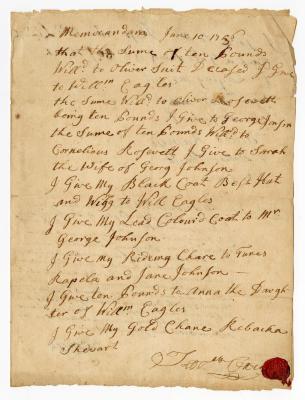 Memorandam June 10 17
that the Sume of ten Pounds
Will'd to Oliver Suit Deceased I Give
to Will.m Eagles
the Sume Will'd to Oliver Rosevelth
being ten Pounds I Give to George Jonson
the Sume of ten Pounds Will'd to
Cornelius Rosevett I Give to Sarah
the Wife of Georg Johnson
I Give My Black Coat Best Hat
and Wigg to Will Eagles
I Give My Lead Colour'd Coat to Mr
George Johnson
I Give my Rideing Chare to Funes
Rapela and Jane Johnson
I Give ten Pounds to Anna the Daugh
ter of Will.m Eagles
I Give My Gold Chane Rebacka
Shevart